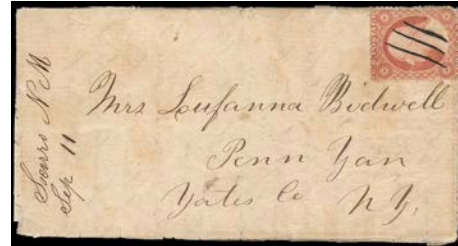 Socorro N M
Sep 11
Mrs Lufanna Bidwell
Penn Yan
Yates Co N Y,